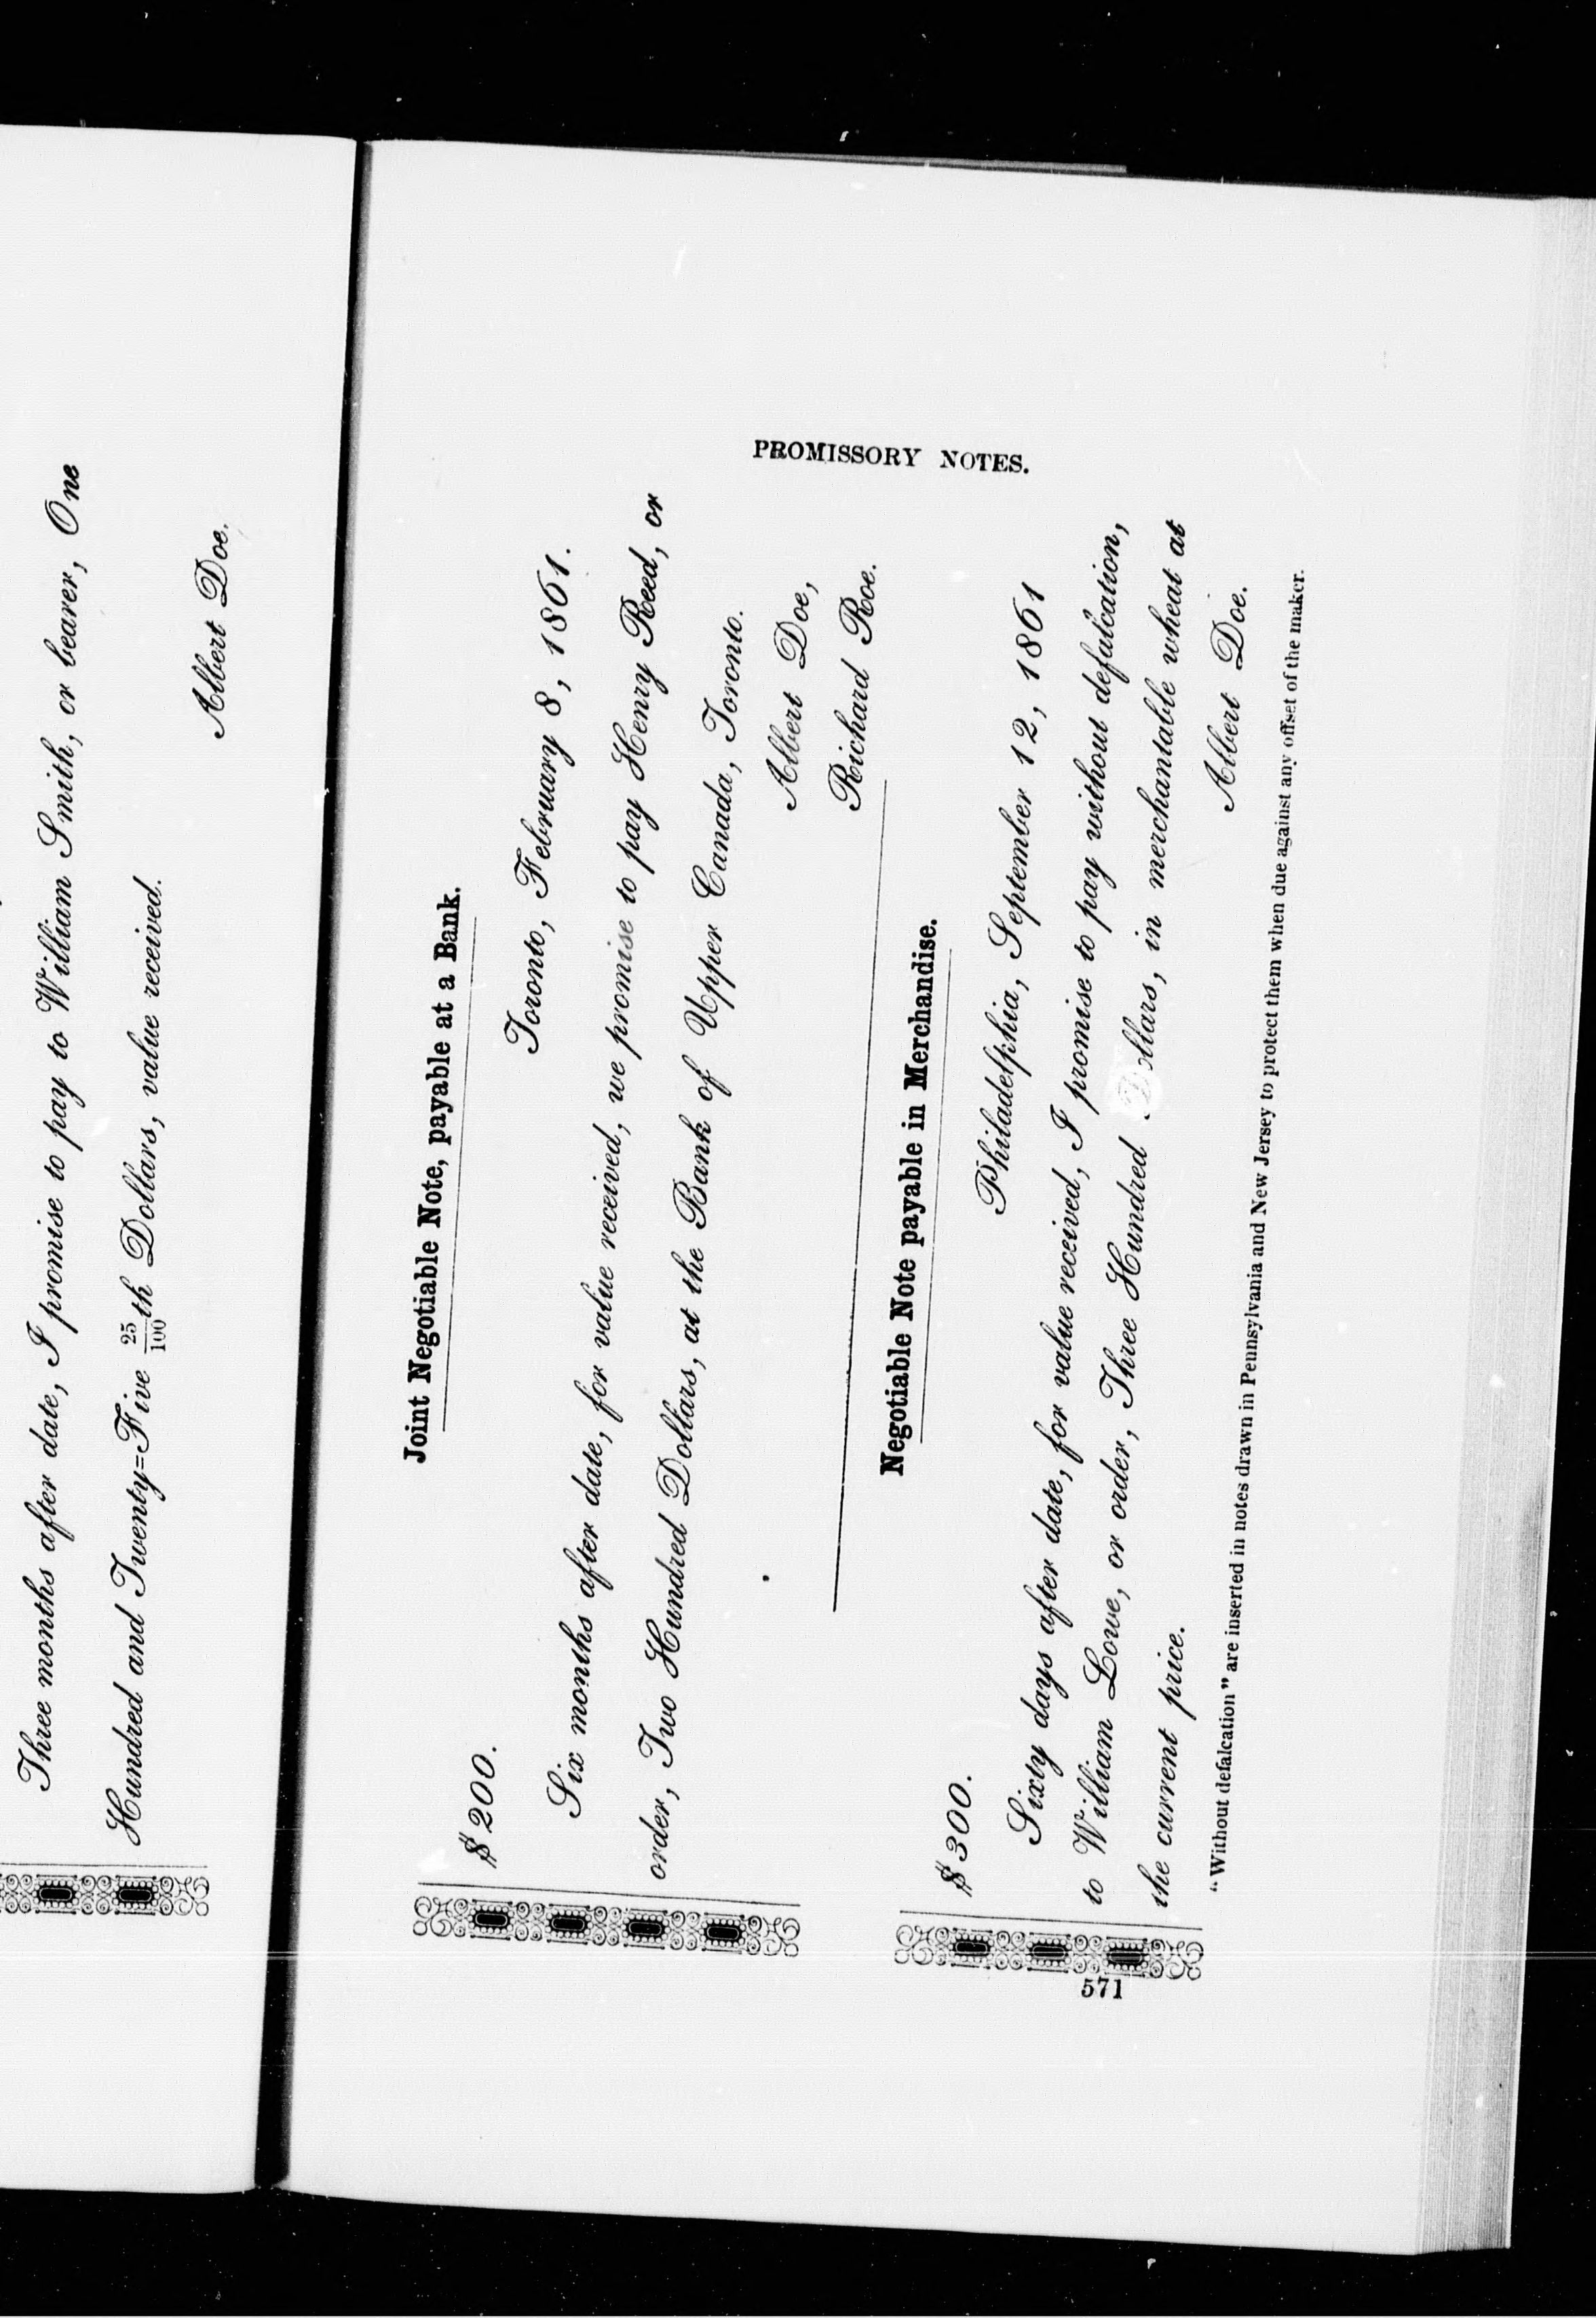 Three months after date, I promise to pay to William Smith, or bearer, One
Hundred and Twenty=Five 25/100th Dollars, value received.
Albert Doe.
PROMISSORY NOTES.
Joint Negotiable Note, payable at a Bank.
$200.
Toronto, February 8, 1861.
Six months after date, for value received, we promise to pay Henry Reed, or
order, Two Hundred Dollars, at the Bank of Upper Canada, Toronto.
Albert Doe,
Richard Roe.
Negotiable Note payable in Merchandise.
$300.
Philadelphia, September 12, 1861
Sixty days after date, for value received, I promise to pay without defalcation,
to William Lowe, or order, Three Hundred Dollars, in merchantable wheat at
the current price.
Albert Doe.
"Without defalcation" are inserted in notes drawn in Pennsylvania and New Jersey to protect them when due against any offset of the maker.
571